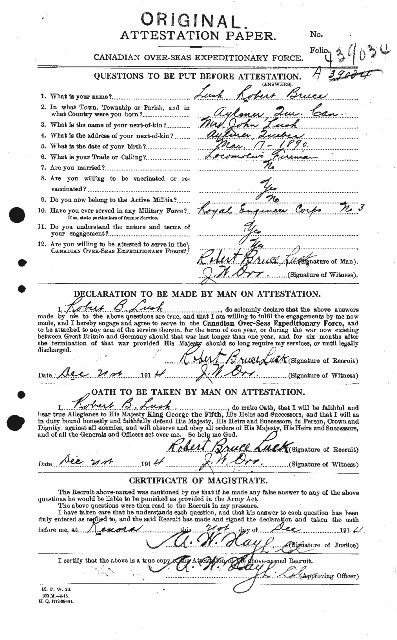 ORIGINAL.
ATTESTATION PAPER.
No.
Folio.
439034
CANADIAN OVER-SEAS EXPEDITIONARY FORCE.
QUESTIONS TO BE PUT BEFORE ATTESTATION.
(ANSWERS).
1. What is your name? Lusk Robert Bruce
2. In what Town, Township or Parish, and in
what Country were you born? Aylmer, Que. Can.
3. What is the name of your next-of-kin? Mrs. John Lusk
4. What is the address of your next-of-kin? Aylmer Quebec
5. What is the date of your birth? Mar. 17-1890
6. What is your Trade or Calling? Locomotive Fireman
7. Are you married? No
8. Are you willing to be vaccinated or re-
vaccinated? Yes
9. Do you now belong to the Active Militia? No
10. Have you ever served in any Military Force? Royal Engineer Corps No 3
If so, state particulars of former Service.
11. Do you understand the nature and terms of
your engagement? Yes
12. Are you willing to be attested to serve in the Yes
CANADIAN OVER-SEAS EXPEDITIONARY FORCE?
Robert Bruce Lusk (Signature of Man).
J.W. Orr (Signature of Witness).
DECLARATION TO BE MADE BY MAN ON ATTESTATION.
I, Robert B. Lusk, do solemnly declare that the above answers
made by me to the above questions are true, and that I am willing to fulfil the engagements by me now
made, and I hereby engage and agree to serve in the Canadian Over-Seas Expeditionary Force, and
to be attached to any arm of the service therein, for the term of one year, or during the war now existing
between Great Britain and Germany should that war last longer than one year, and for six months after
the termination of that war provided His Majesty should so long require my services, or until legally
discharged.
Robert Bruce Lusk (Signature of Recruit)
Date Dec 1914 J.W. Orr (Signature of Witness)
OATH TO BE TAKEN BY MAN ON ATTESTATION.
I, Robert B. Lusk, do make Oath, that I will be faithful and
bear true Allegiance to His Majesty King George the Fifth, His Heirs and Successors, and that I will as
in duty bound honestly and faithfully defend His Majesty, His Heirs and Successors, in Person, Crown and
Dignity, against all enemies, and will observe and obey all orders of His Majesty, His Heirs and Successors,
and of all the Generals and Officers set over me. So help me God.
Robert Bruce Lusk (Signature of Recruit)
Date Dec 1914 J.W. Orr (Signature of Witness)
CERTIFICATE OF MAGISTRATE.
The Recruit above-named was cautioned by me that if he made any false answer to any of the above
questions he would be liable to be punished as provided in the Army Act.
The above questions were then read to the Recruit in my presence.
I have taken care that he understands each question, and that his answer to each question has been
duly entered as replied to, and the said Recruit has made and signed the declaration and taken the oath
before me, at Kenora this day of Dec 1914
(Signature of Justice)
I certify that the above is a true copy of the Attestation of the above-named Recruit.
(Approving Officer)
M. F. W. 23.